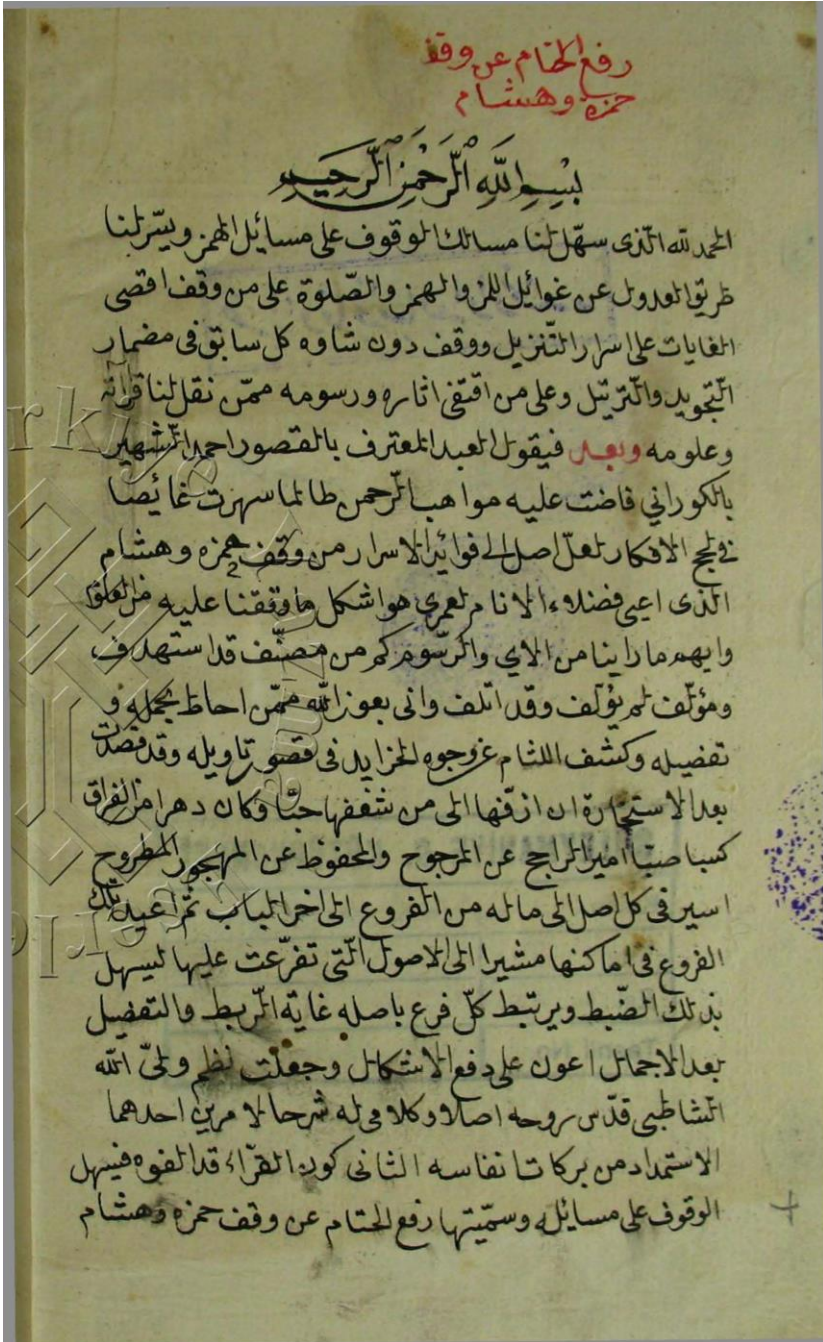 رفع الختام عن وقف
حمزه وهشام
بسم الله الرحمن الرحيم
الحمد لله الذى سهّل لنا مسالك الوقوف على مسائل الهمز ويسّر لنا
طريق العدول عن غوائل اللمز والهمز والصّلوة على من وقف اقصى
الغايات على اسرار التّنزيل ووقف دون شاوه كل سابق فى مضمار
التّجويد والتّرتيل وعلى من اقتفى اثاره ورسومه ممّن نقل لنا قرآنه
وعلومه وبعد فيقول العبد المعترف بالقصور احمد الشّهير
بالكوراني فاضت عليه مواهب الرّحمن طالما سهرت غائصا
فى لجج الافكار لعلّ اصل الى فوائد الاسرار من وقف حمزه وهشام
الذى اعيى فضلاء الانام لعمرى هو اشكل ما وقفنا عليه من العلوم
وابهم ما راينا من الاي والرّسوم كم من مصنّف قد استهدف
ومؤلّف لم يؤلّف وقد اتلف وانى بعون الله ممّن احاط بجمله و
تفضيله وكشف اللثام عن وجوه الخرايد فى قصور تاويله وقد قصدت
بعد الاستخارة ان ازفّها الى من شغفها حبّا وكان دهرا من الفراق
كسبا صبّا اميز الراجح عن المرجوح والمحفوظ عن المهجور المطروح
اسير فى كل اصل الى ماله من الفروع الى اخر الباب ثم اعيد تلك
الفروع فى اماكنها مشيرا الى الاصول الّتى تفرّعت عليها ليسهل
بذلك الضّبط ويرتبط كلّ فرع باصله غاية الرّبط والتفضيل
بعد الاجمال اعون على دفع الاشكال وجعلت نظم ولىّ الله
الشاطبى قدّس روحه اصلا وكلامى له شرحا لامرين احدهما
الاستمداد من بركات انفاسه الثانى كون القرّاء قد الفوه فيسهل
الوقوف على مسائله وسمّيتها رفع الختام عن وقف حمزه وهشام